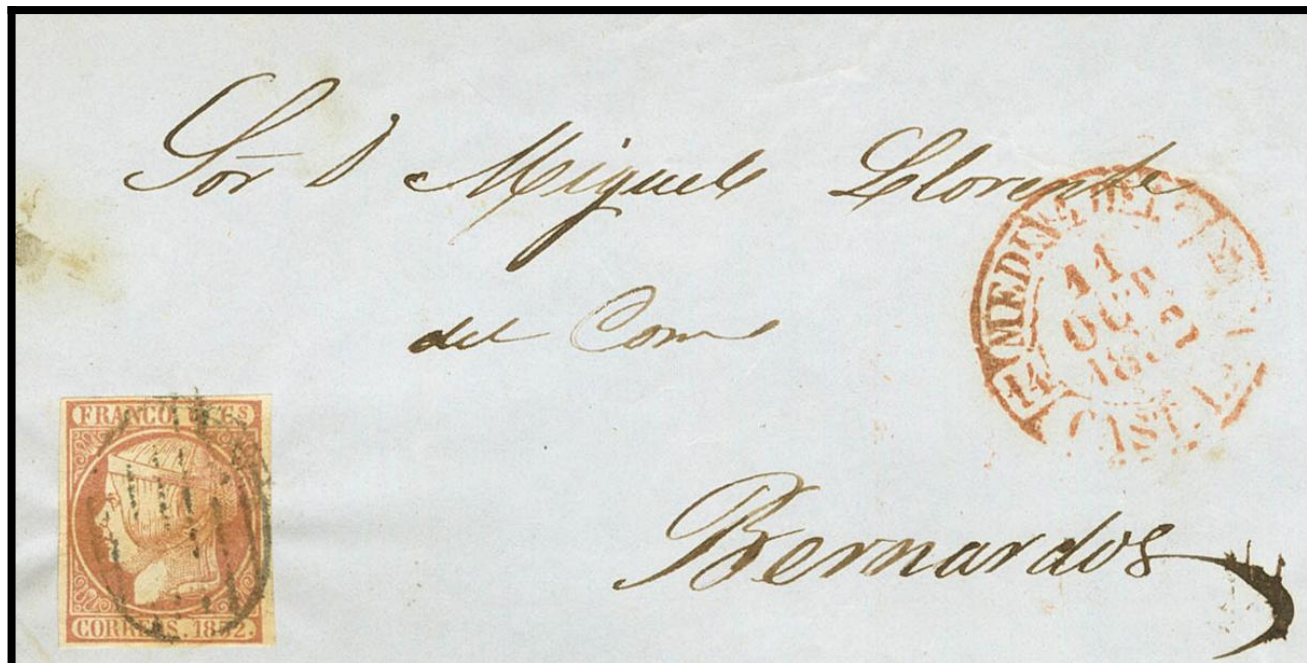 Sor D Miguel Llorente
del Com
MEDINA DEL
11
OCT
1852
14
CAST. LA V.
FRANCO 6 Cs
CORREOS. 1852.
Bernardos